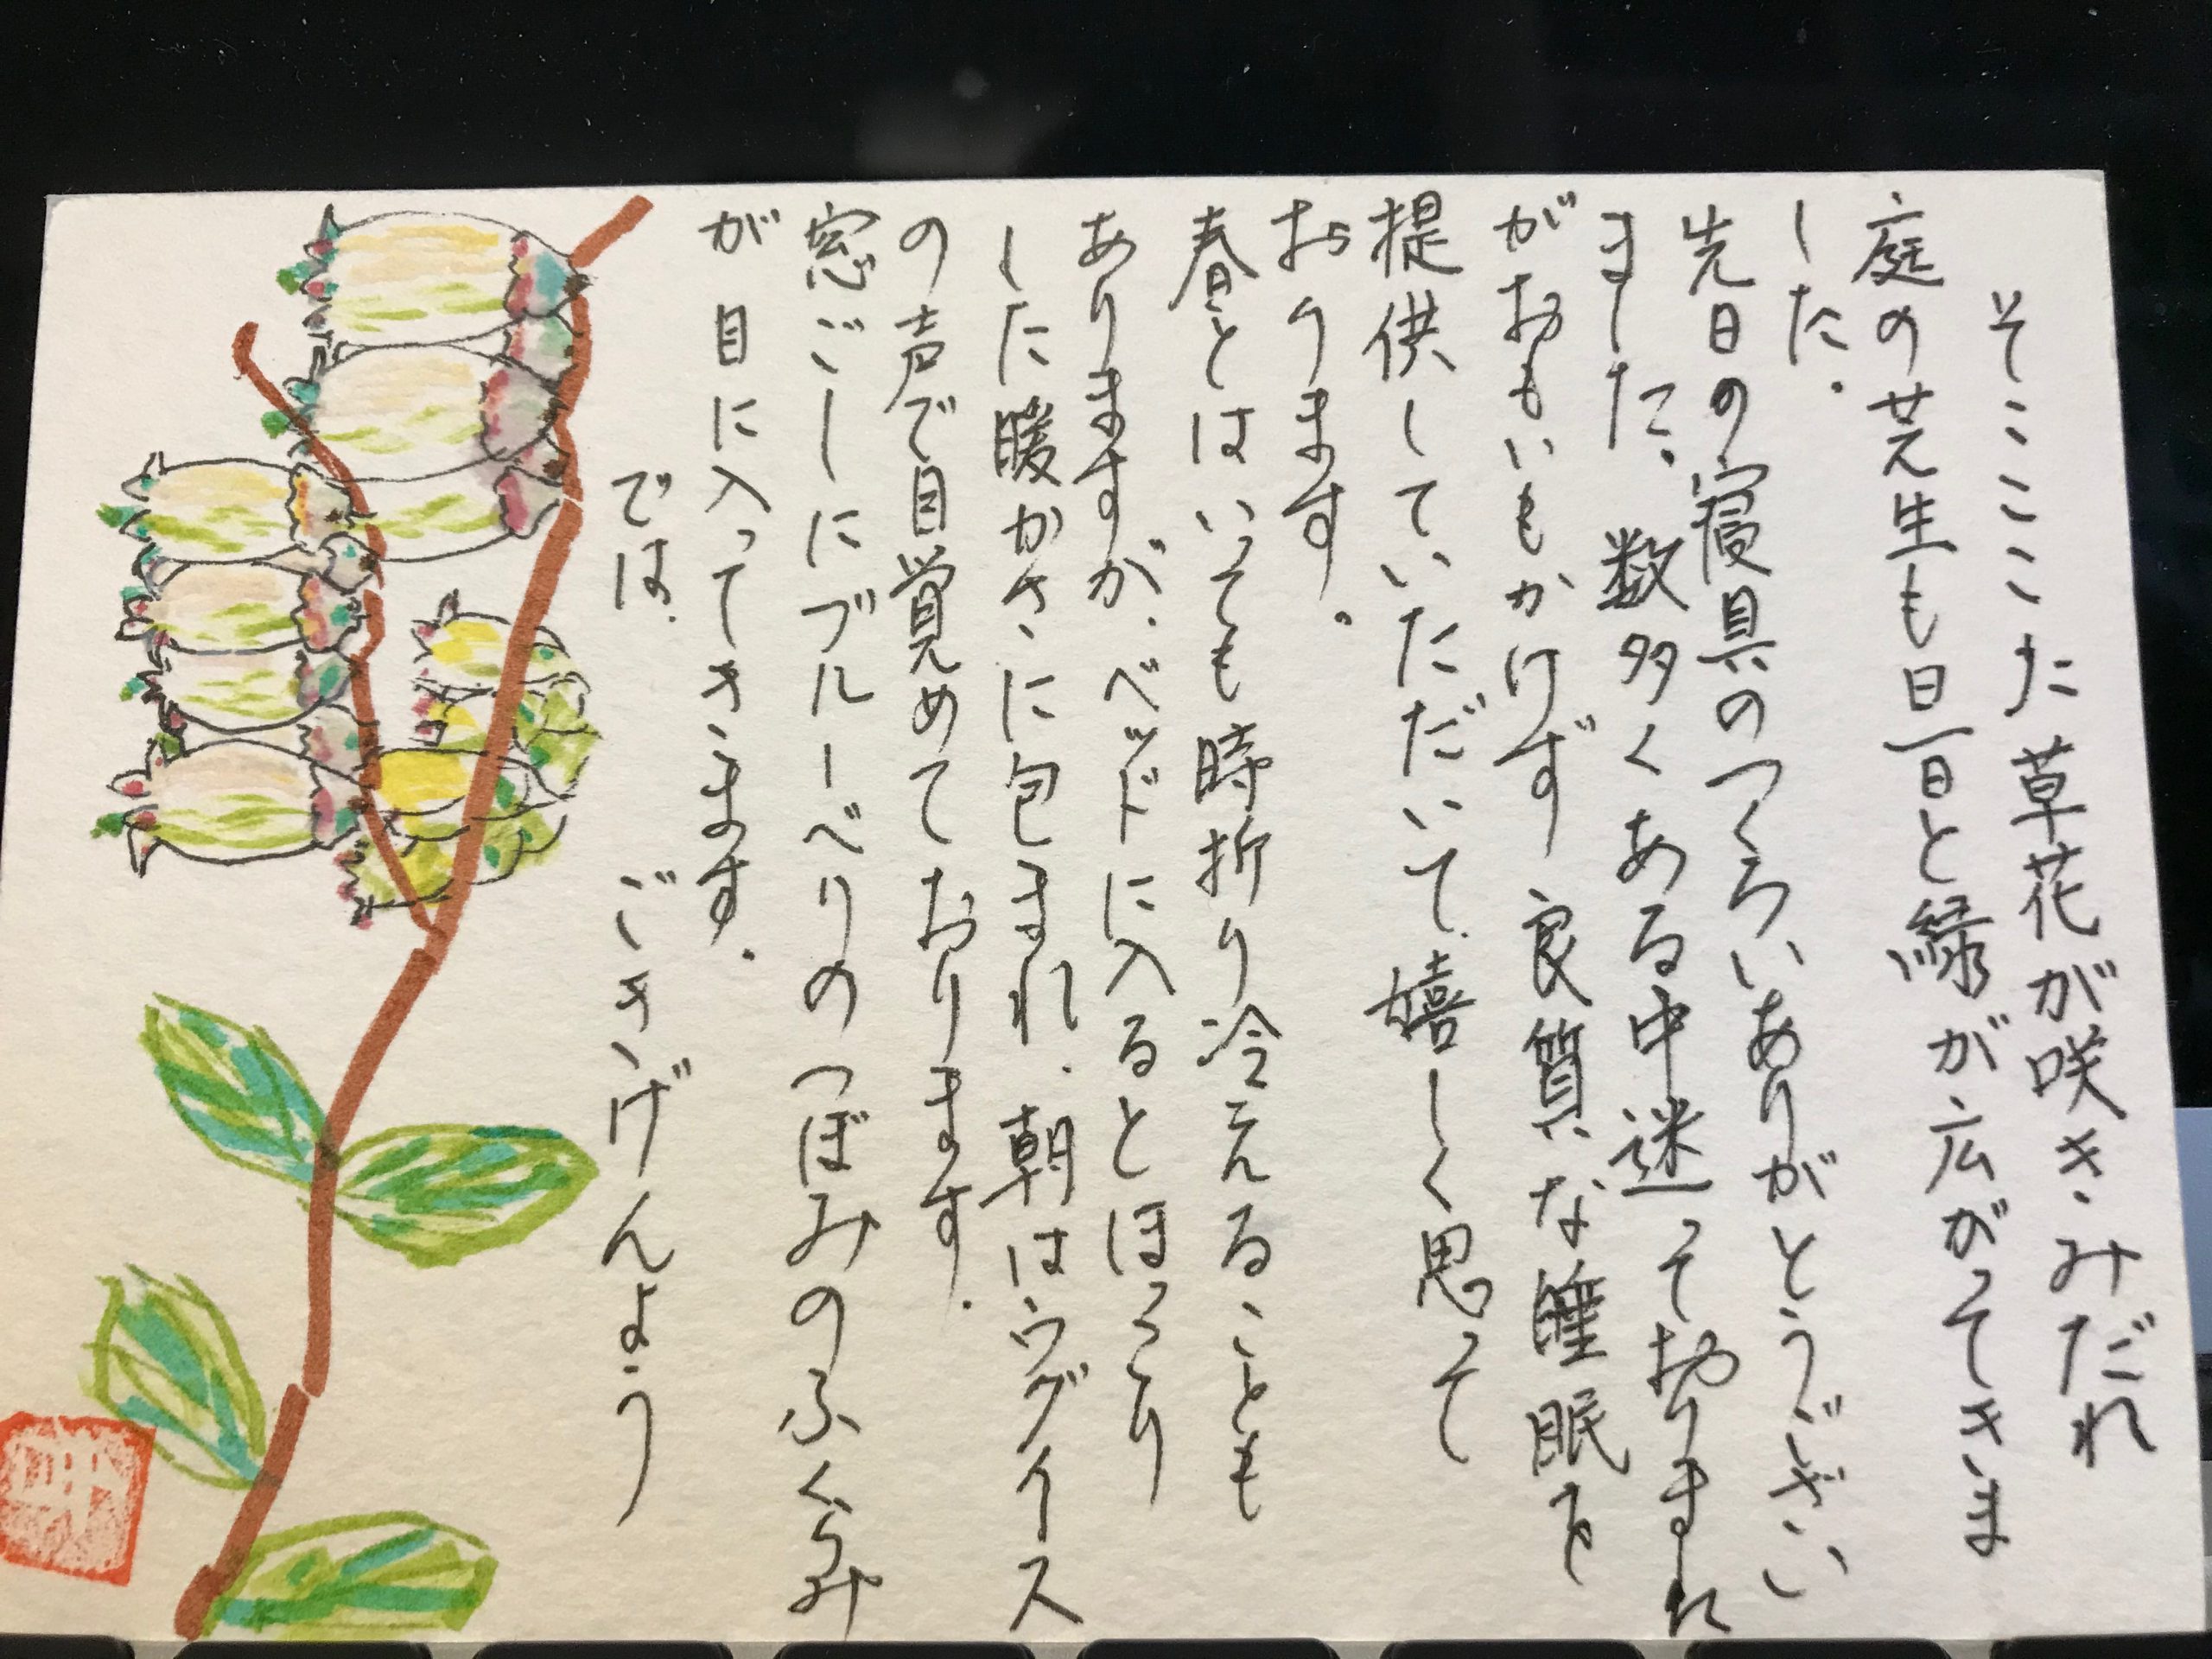 そこここた草花が咲きみだれ
庭の芝生も日一日と緑が広がってきま
した。
先日の寝具のつくろいありがとうござい
ました。数多くある中迷っておりまれ
がおもいもかけず良質な睡眠を
提供していただいて、嬉しく思って
おります。
春とはいっても時折り冷えることも
ありますが、ベッドに入るとほっこり
した暖かさに包まれ、朝はウグイス
の声で目覚めております。
窓ごしにブルーベリのつぼみのふくらみ
が目に入ってきます。
では、ごきげんよう